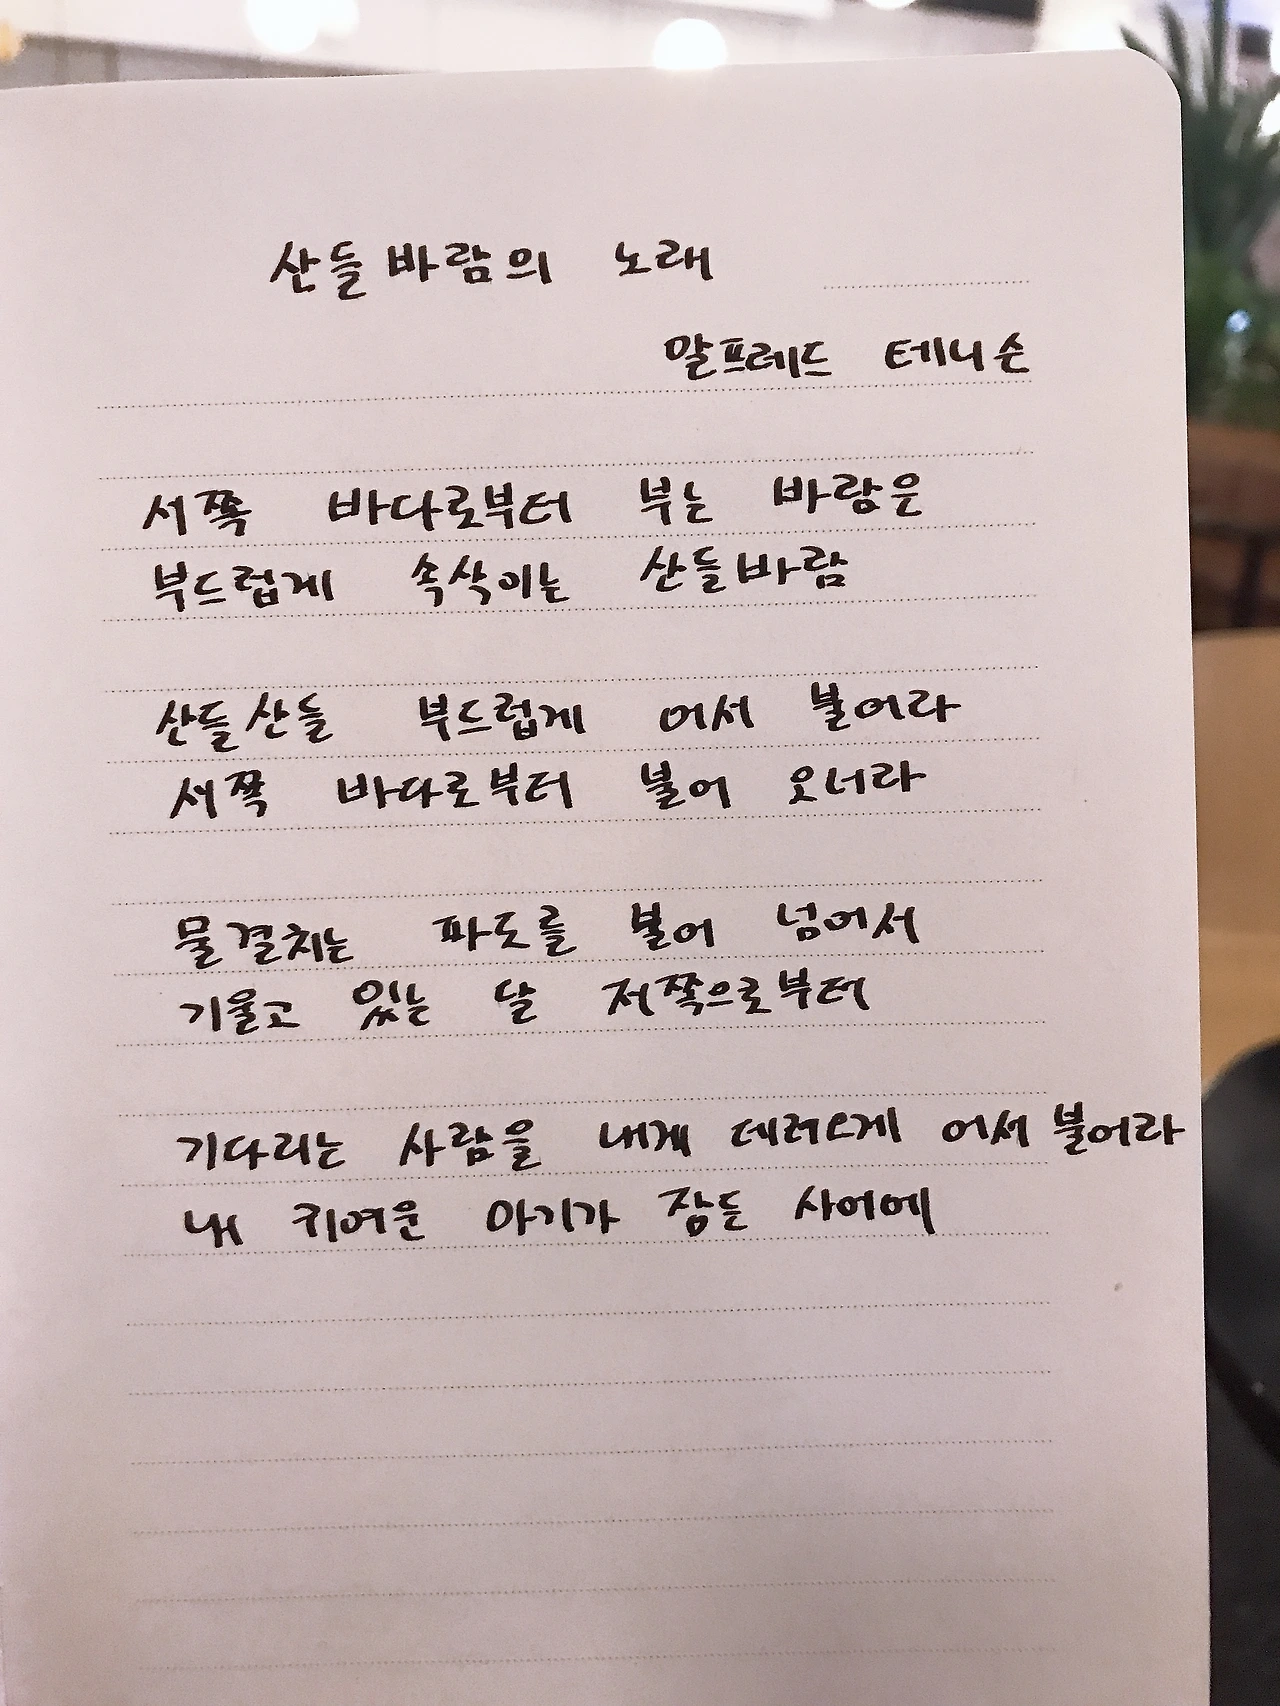 산들바람의 노래
알프레드 테니슨
서쪽 바다로부터 부는 바람은
부드럽게 속삭이는 산들바람
산들산들 부드럽게 어서 불어라
서쪽 바다로부터 불어 오너라
물결치는 파도를 불어 넘어서
기울고 있는 달 저쪽으로부터
기다리는 사람을 내게 데려오게 어서 불어라
내 귀여운 아기가 잠든 사이에